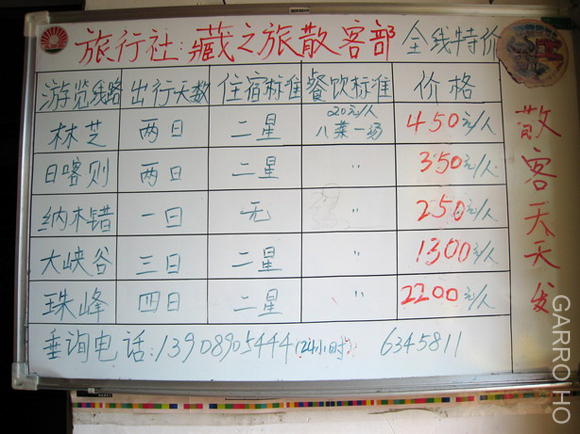 旅行社:藏之旅散客部 全线特价
游览线路 出行天数 住宿标准 餐饮标准 价格
林芝 两日 二星 20元/人 八菜一汤 450元/人
日喀则 两日 二星 " 350元/人
纳木错 一日 无 " 250元/人
大峡谷 三日 二星 " 1300元/人
珠峰 四日 二星 " 2200元/人
垂询电话:13908905444(24小时) 6345811
散客天天发
GARROHO